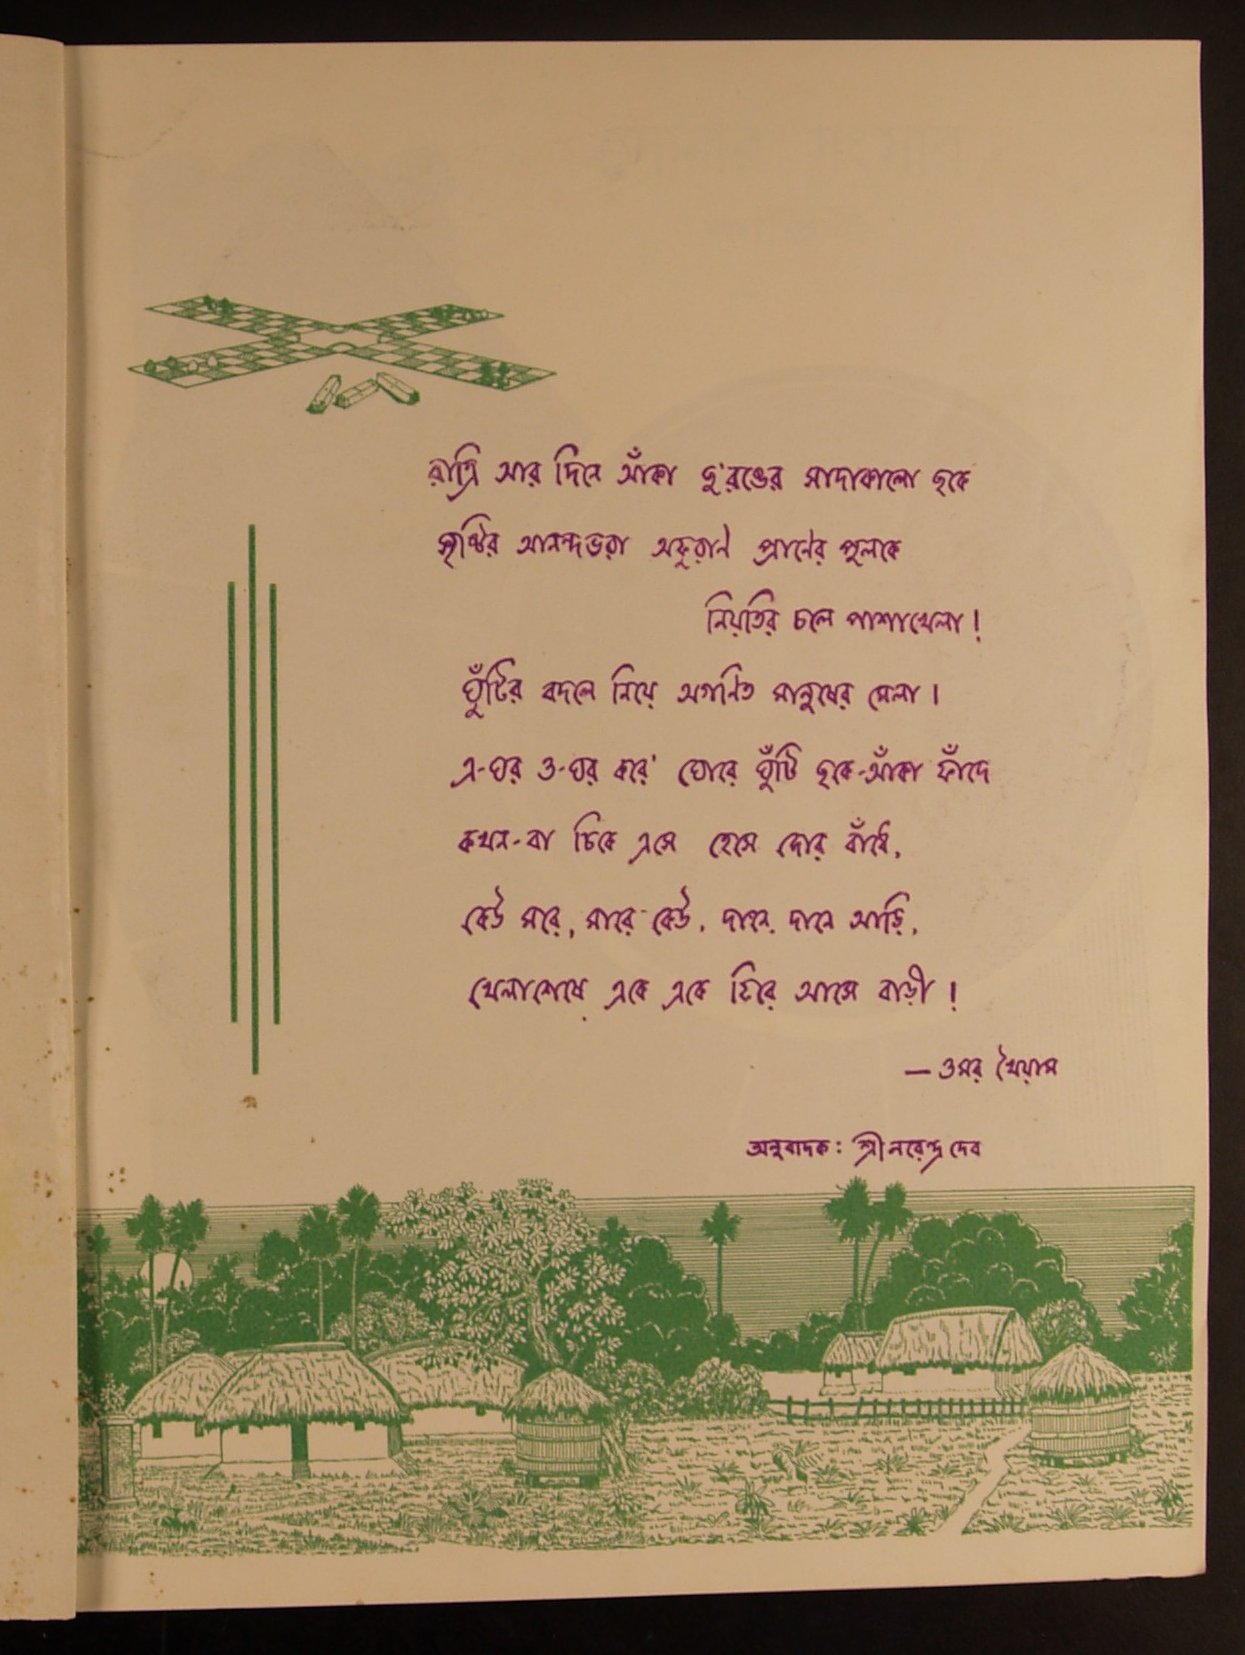 রাত্রি আর দিনে আঁকা দু'রঙের সাদাকালো ছকে
সৃষ্টির আনন্দভরা অফুরান প্রাণের পুলকে
নিয়তির চলে পাশাখেলা!
ঘুঁটির বদলে নিয়ে অগণিত মানুষের মেলা।
এ-ঘর ও-ঘর করে' ঘোরে ঘুঁটি ছকে-আঁকা ফাঁদে
কখন-বা চিকে এসে হেসে দোর বাঁধে,
কেউ মরে, মারে কেউ, দানে দানে আড়ি,
খেলাশেষে একে একে ফিরে আসে বাড়ী!
— ওমর খৈয়াম
অনুবাদক: শ্রীনরেন্দ্র দেব